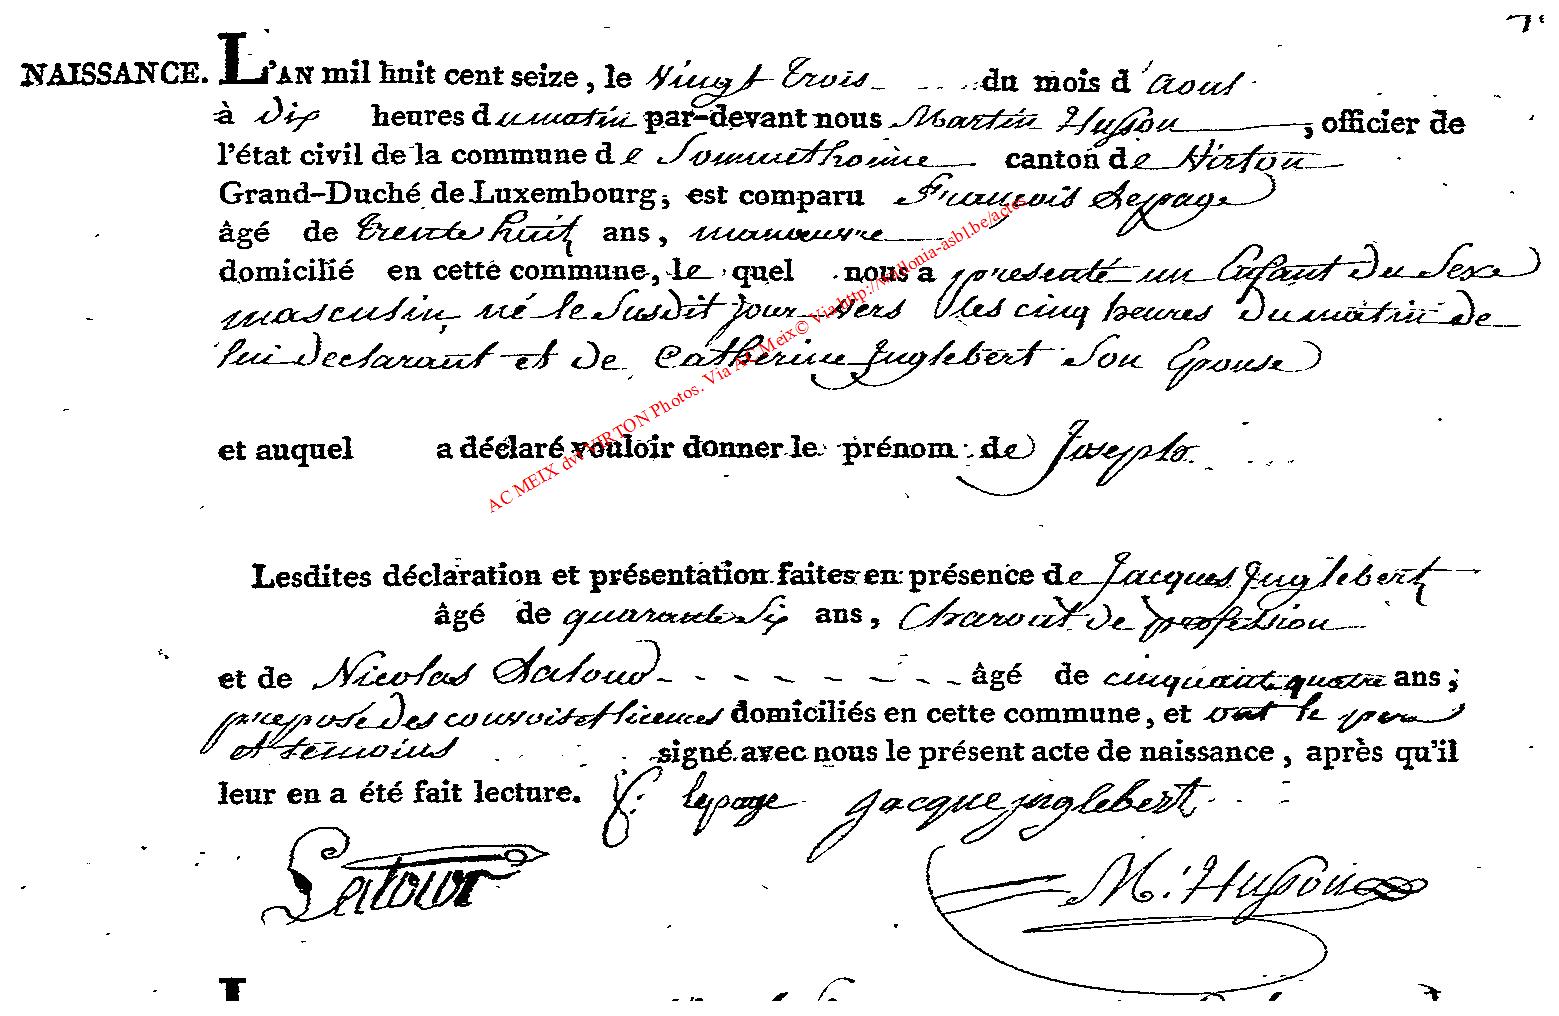 NAISSANCE. L'AN mil huit cent seize, le vingt trois du mois d'aout
à dix heures du matin par-devant nous Martin Husson, officier de
l'état civil de la commune de Sommethonne canton de Virton
Grand-Duché de Luxembourg; est comparu François Lepage
âgé de trente huit ans, manœuvre
domicilié en cette commune, le quel nous a presenté un Enfant du Sexe
masculin, né le Susdit jour vers les cinq heures du matin de
lui declarant et de Catherine Inglebert Son Epouse
et auquel a déclaré vouloir donner le prénom de Joseph
AC MEIX dvt VIRTON Photos. Via AC Meix© Via http://wallonia-asbl.be/actes
Lesdites déclaration et présentation faites en présence de Jacques Inglebert
âgé de quarante Six ans, Charon de profession
et de Nicolas Latour âgé de cinquante quatre ans;
preposé des domiciliés en cette commune, et ont le pere
et temoins signé avec nous le présent acte de naissance, après qu'il
leur en a été fait lecture. f. lepage Jacque inglebert
Latour M. Husson